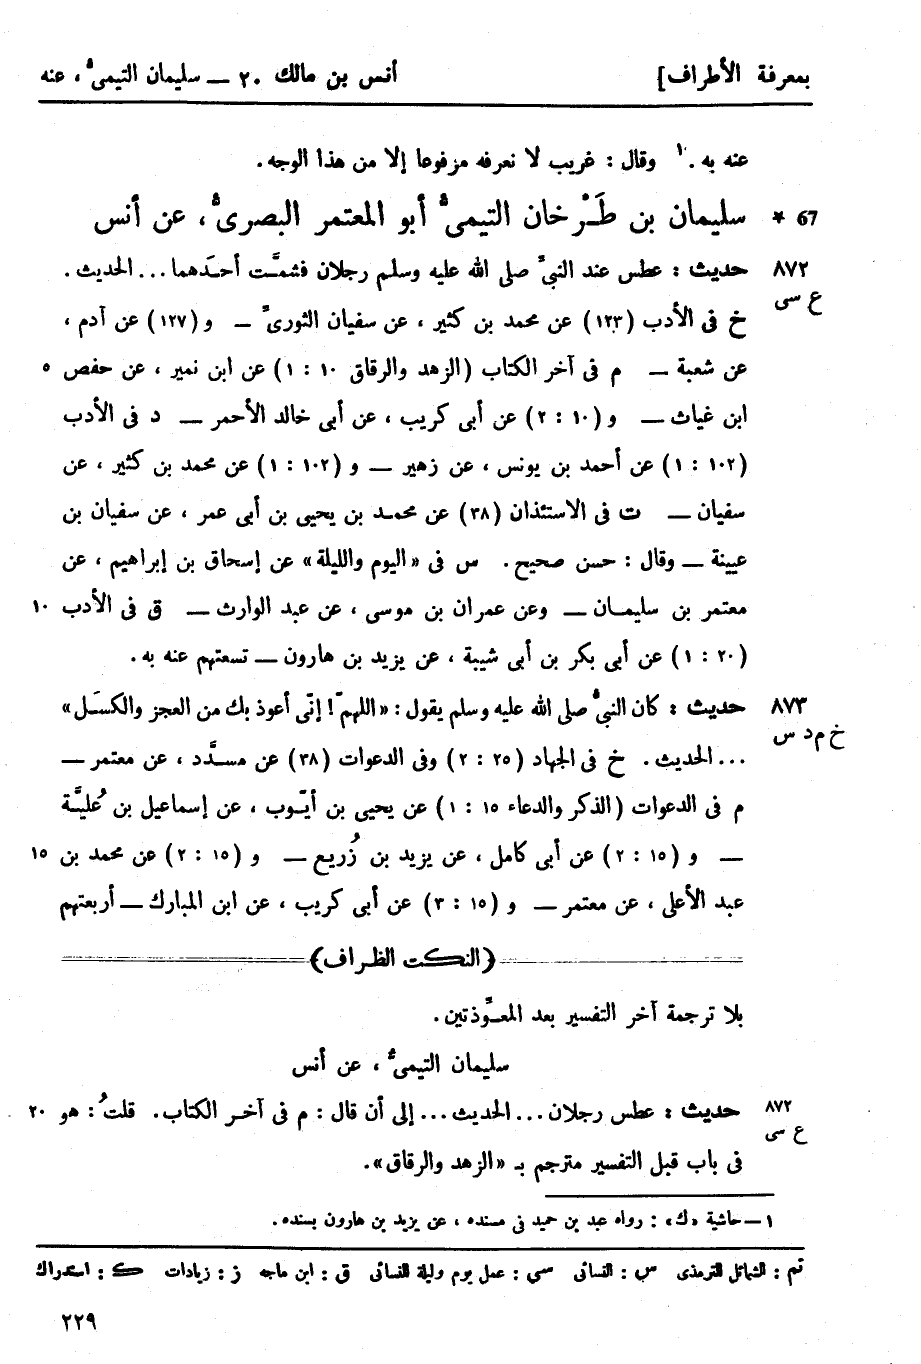 بمعرفة الأطراف] أنس بن مالك ٢٠ — سليمان التيمىّ ، عنه
عنه به .١ وقال : غريب لا نعرفه مرفوعا إلا من هذا الوجه .
67 * سليمان بن طَرْخان التيمىّ أبو المعتمر البصرىّ ، عن أنس
٨٧٢ حديث : عطس عند النبىّ صلى الله عليه وسلم رجلان فشمَّت أحدَهما ... الحديث .
ع سى
خ فى الأدب (١٢٣) عن محمد بن كثير ، عن سفيان الثورىّ — و (١٢٧) عن آدم ،
عن شعبة — م فى آخر الكتاب (الزهد والرقاق ١٠ : ١) عن ابن نمير ، عن حفص ٥
ابن غياث — و (١٠ : ٢) عن أبى كريب ، عن أبى خالد الأحمر — د فى الأدب
(١٠٢ : ١) عن أحمد بن يونس ، عن زهير — و (١٠٢ : ١) عن محمد بن كثير ، عن
سفيان — ت فى الاستئذان (٣٨) عن محمد بن يحيى بن أبى عمر ، عن سفيان بن
عيينة — وقال : حسن صحيح . س فى «اليوم والليلة» عن إسحاق بن إبراهيم ، عن
معتمر بن سليمان — وعن عمران بن موسى ، عن عبد الوارث — ق فى الأدب ١٠
(٢٠ : ١) عن أبى بكر بن أبى شيبة ، عن يزيد بن هارون — تسعتهم عنه به .
٨٧٣ حديث : كان النبىّ صلى الله عليه وسلم يقول : «اللهمّ ! إنّى أعوذ بك من العجز والكسَل»
خ م د س
... الحديث . خ فى الجهاد (٢٥ : ٢) وفى الدعوات (٣٨) عن مسدَّد ، عن معتمر —
م فى الدعوات (الذكر والدعاء ١٥ : ١) عن يحيى بن أيّوب ، عن إسماعيل بن عُليَّة
— و (١٥ : ٢) عن أبى كامل ، عن يزيد بن زُريع — و (١٥ : ٢) عن محمد بن ١٥
عبد الأعلى ، عن معتمر — و (١٥ : ٣) عن أبى كريب ، عن ابن المبارك — أربعتهم
(النكت الظراف)
بلا ترجمة آخر التفسير بعد المعوَّذتين .
سليمان التيمىّ ، عن أنس
٨٧٢ حديث : عطس رجلان ... الحديث ... إلى أن قال : م فى آخر الكتاب . قلتُ : هو ٢٠
ع سى
فى باب قبل التفسير مترجم بـ «الزهد والرقاق» .
١ — حاشية «ك» : رواه عبد بن حميد فى مسنده ، عن يزيد بن هارون بسنده .
تم : الشمائل للترمذى س : النسائى سى : عمل يوم وليلة للنسائى ق : ابن ماجه ز : زيادات ك : استدراك
٢٢٩